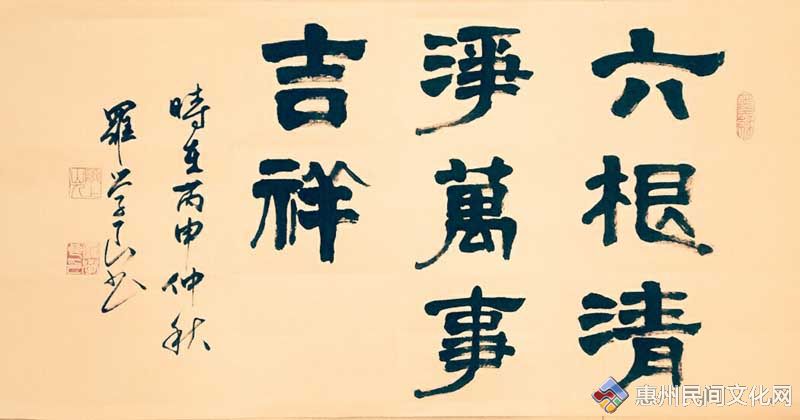 六根清
淨萬事
吉祥
時在丙申仲秋
羅学书
惠州民间文化网